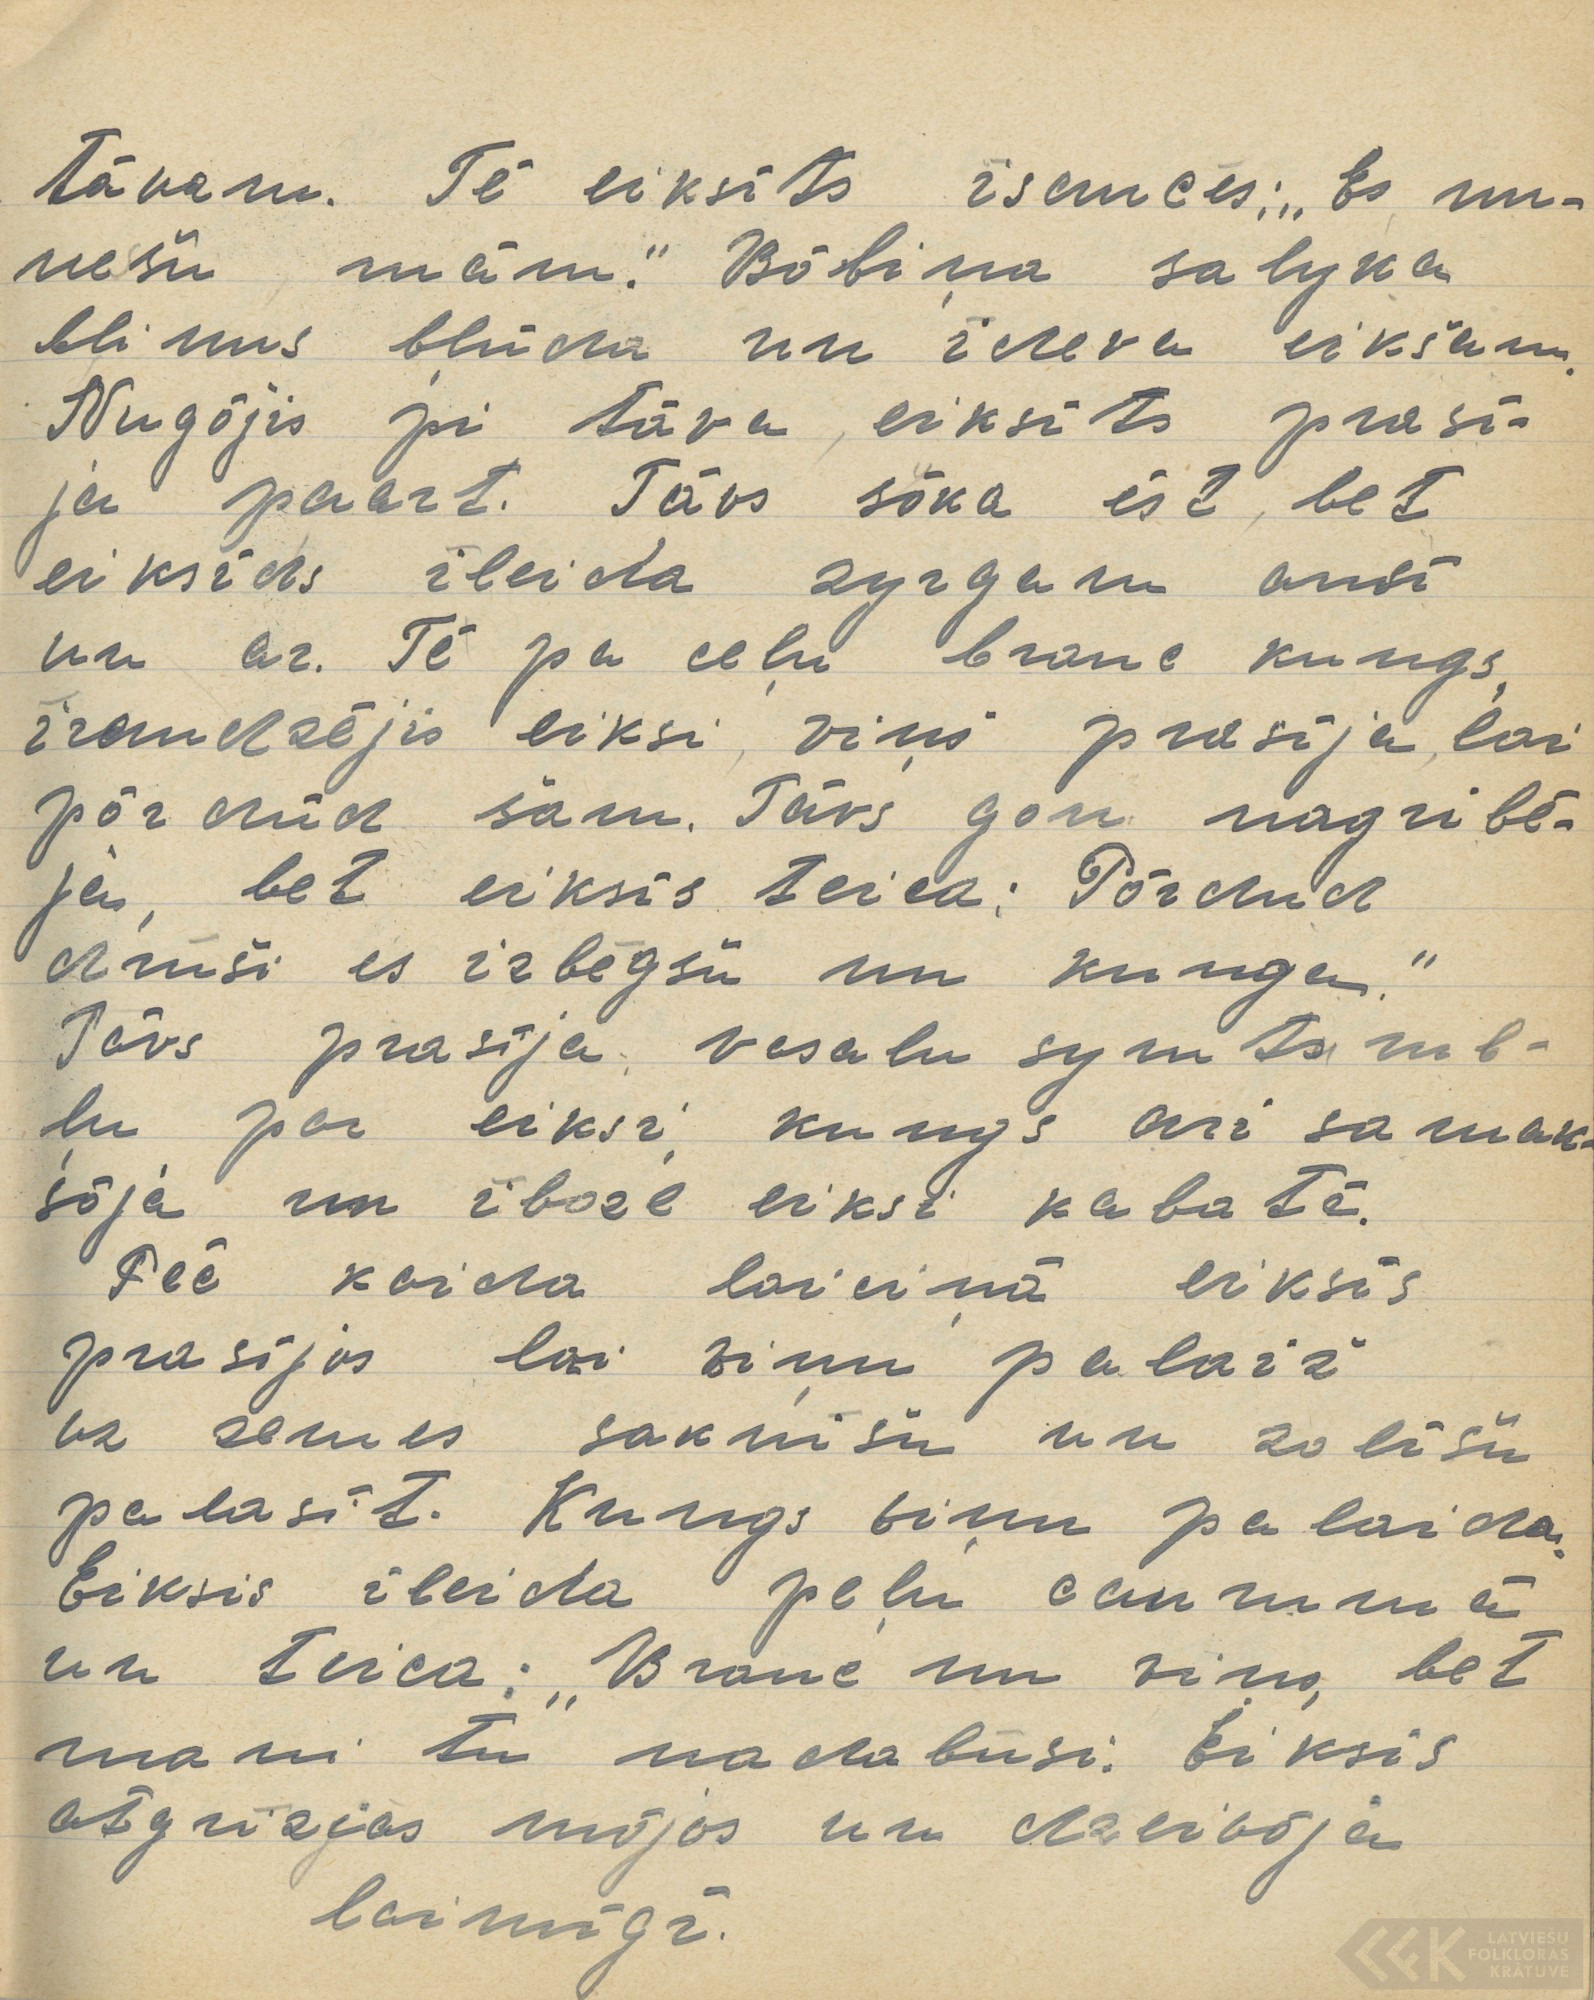 tāvam. Tē eiksīts īsaucēs: „Es nu-
nešu mām." Bōbiņa salyka
blinus bļūda un īdeva eikšam.
Nugōjis pi tāva, eiksīts prasī-
ja paart. Tāvs sōka ēst, bet
eiksīds īleida zyrgam ausī
un ar. Tē pa ceļu brauc kungs,
īraudzējis eiksi, viņš prasīja, lai
pōrdūd šam. Tāvs gon nagribē-
ja, bet eiksīs teica: Pōrdud
drūši es izbēgšu nu kunga."
Tāvs prasīja vasalu symts rub-
ļu par eiksi, kungs ari samak-
sōja un ībozē eiksi kabatē.
Pēc kaida laiciņā eiksīs
prasījos lai viņu palaiž
uz zemes saknīšu un zolīšu
palasīt. Kungs viņu palaida.
Eiksis īleida peļu caurumā
un teica: „Brauc nu viņs, bet
mani tu nadabūsi. Eiksīs
atgrīzjas mōjos un dzeivōja
laimīgī.
LATVIEŠU
FOLKLORAS
KRĀTUVE